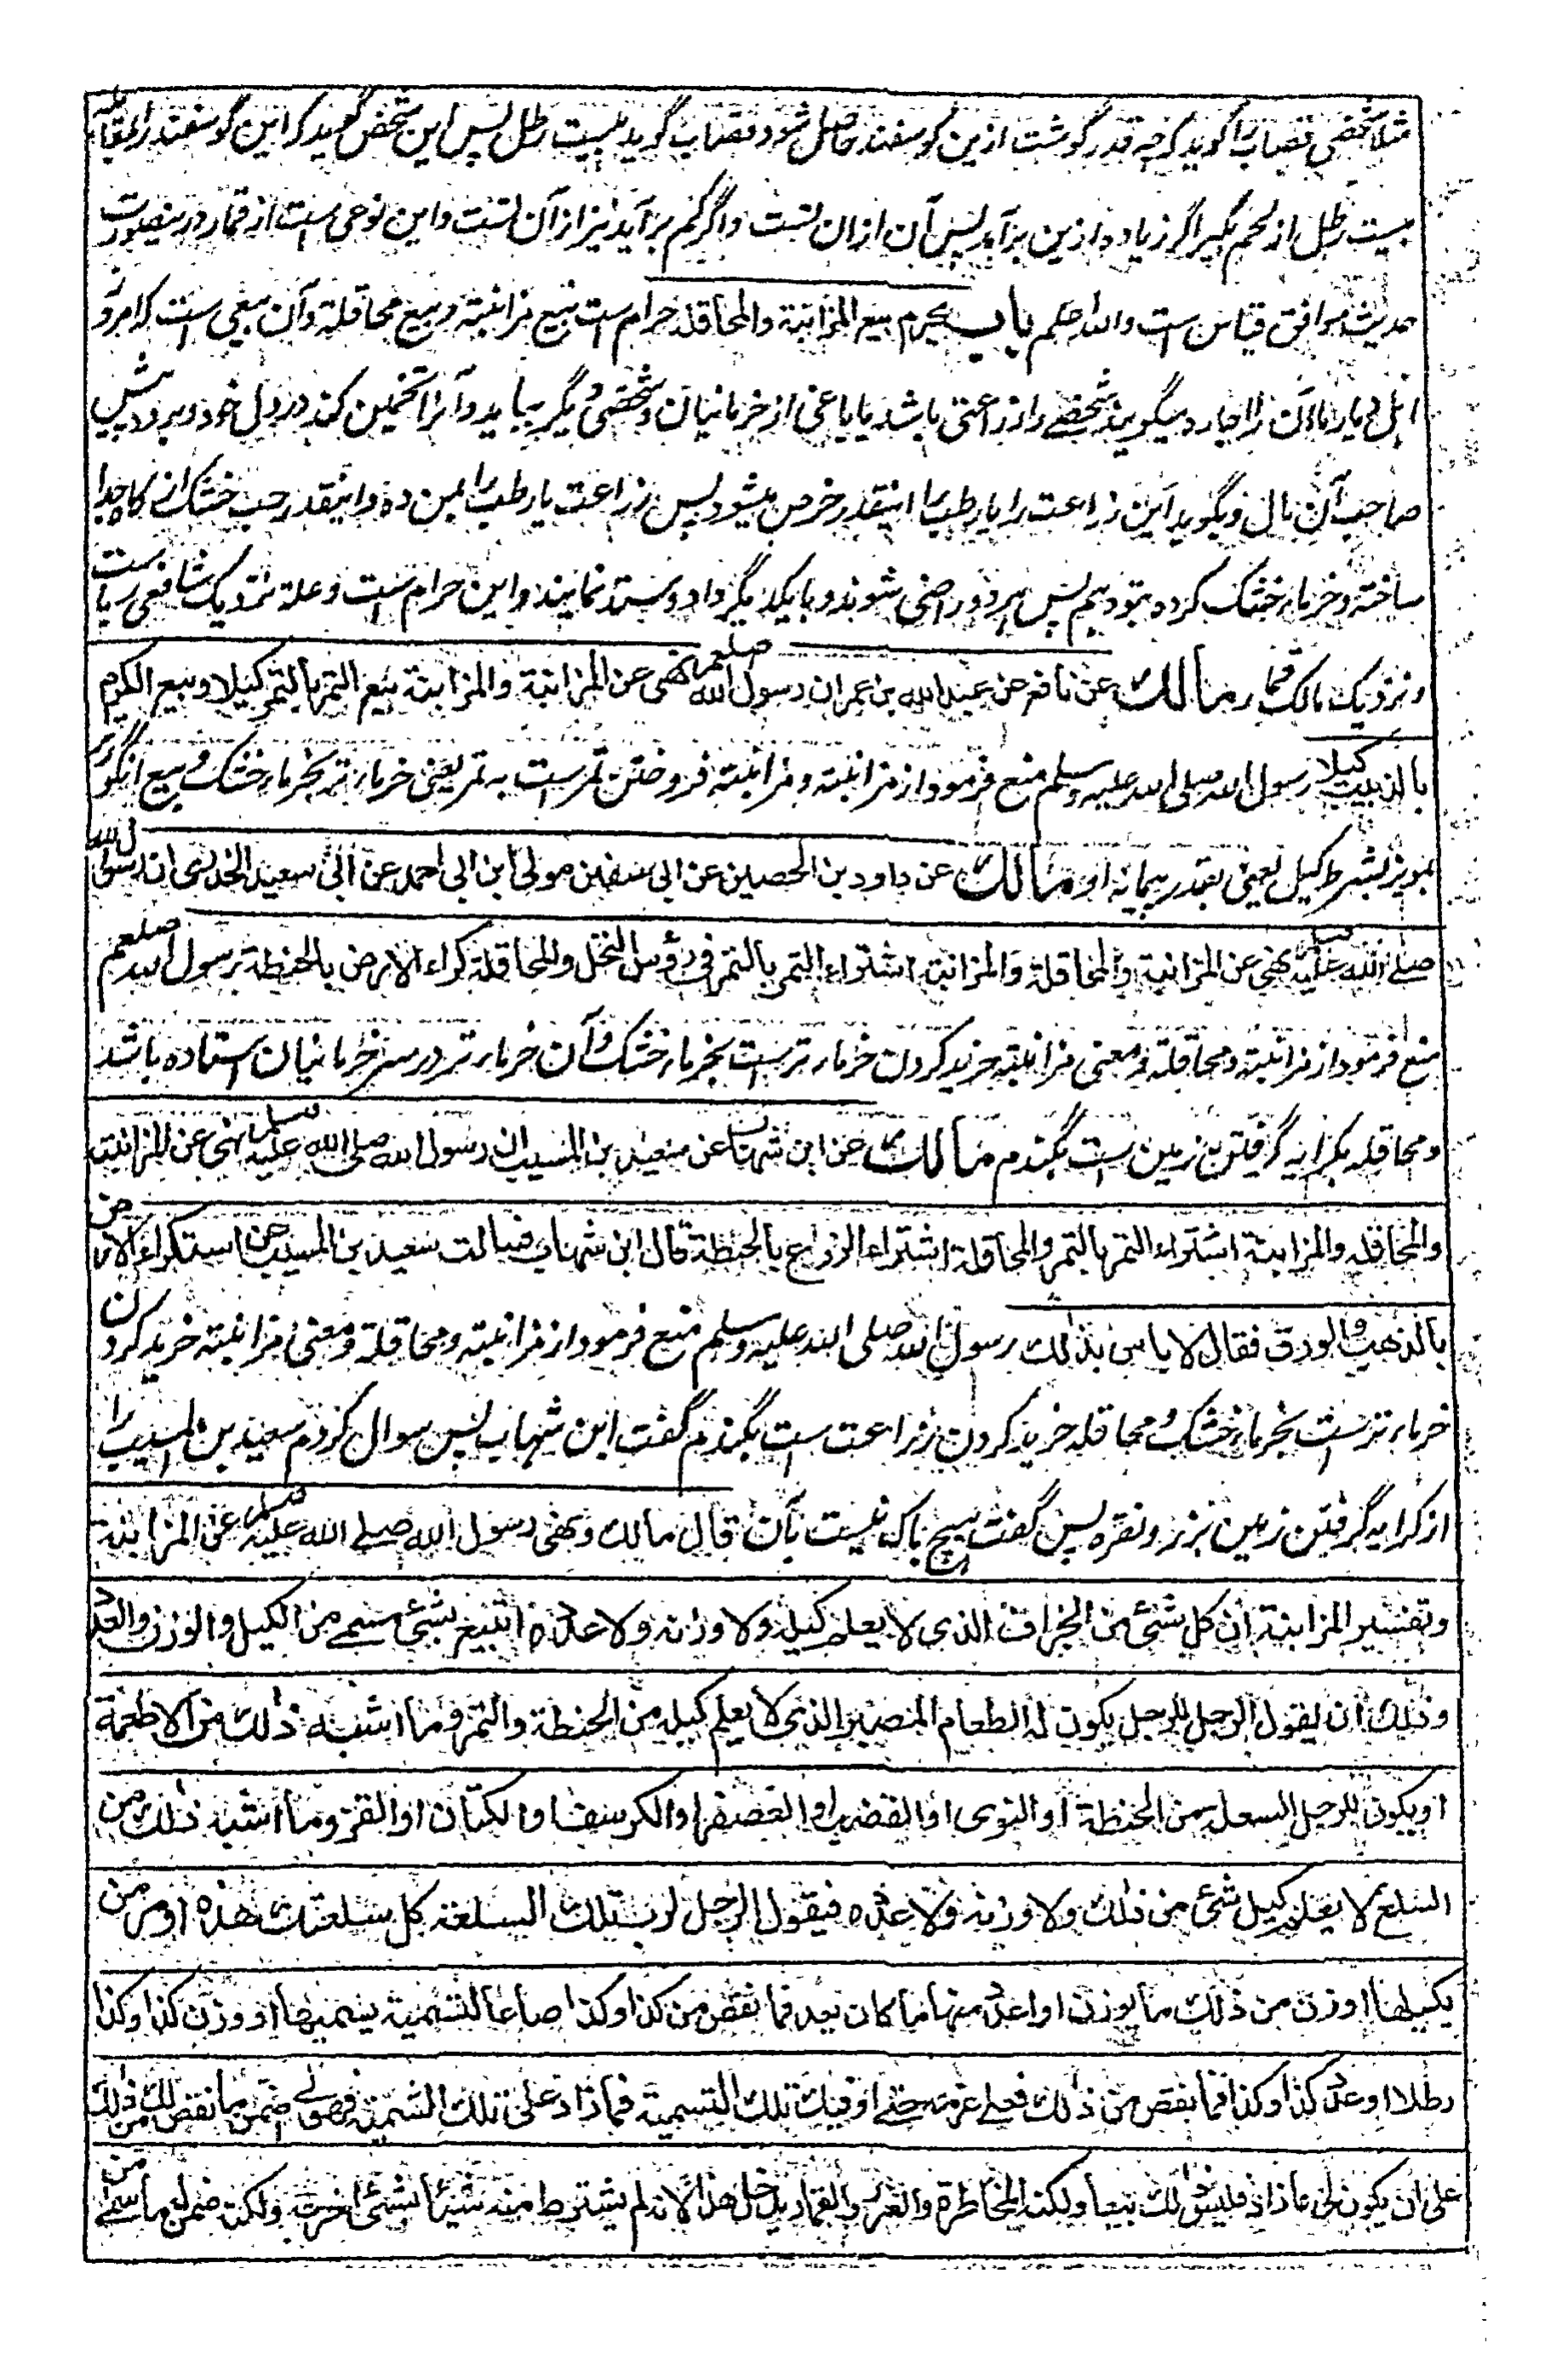 مثلا شخصی قصاب را گوید که چه قدر گوشت ازین گوسفند حاصل شود قصاب گوید بیست رطل پس این شخص گوید که این گوسفند را بمقابله
بیست رطل از لحم بگیر اگر زیاده ازین برآید پس آن ازان تست و اگر کم برآید نیز ازان تست و این نوعی ست از قمار درینصورت
حدیث موافق قیاس ست والله اعلم باب یحرم بیع المزابنة والمحاقلة حرام ست بیع مزابنة و بیع محاقلة وآن بیعی ست که امروز
اهل دیار ما آن را اجاره میگویند شخصے را زراعتی باشد یا باغی از خرمانیان و شخصی دیگر بیاید و آنرا تخمین کند در دل خود و برود پیش
صاحب آن مال و بگوید این زراعت را یا رطب را اینقدر خرص میشود پس زراعت یا رطب را بمن ده و اینقدر حب خشک از کاه جدا
ساخته و خرماء خشک کرده بتو دهیم پس هر دو راضی شوند و با یکدیگر داد و ستد نمایند و این حرام ست و علة نزدیک شافعی ربا ست
و نزدیک مالک قمار مالك عن نافع عن عبد الله بن عمر ان رسول الله صلعم نهى عن المزابنة والمزابنة بيع الثمر بالتمر كيلا وبيع الكرم
بالزبيب كيلا رسول الله صلی الله علیه وسلم منع فرمود از مزابنة و مزابنة فروختن ثمر ست به تمر یعنی خرماء تر بخرماء خشک و بیع انگور تر
بمویز بشرط کیل یعنی بقدر پیمانه او مالك عن داود بن الحصين عن ابي سفين مولى ابن ابي احمد عن ابي سعيد الخدري ان رسول الله
صلے الله عليه وسلم نهى عن المزابنة والمحاقلة والمزابنة اشتراء الثمر بالتمر في رؤس النخل والمحاقلة كراء الارض بالحنطة رسول الله صلعم
منع فرمود از مزابنة و محاقلة و معنی مزابنة خرید کردن خرماء تر ست بخرماء خشک و آن خرماء تر در سر خرمانیان ستاده باشد
و محاقله بکرایه گرفتن زمین ست بگندم مالك عن ابن شهاب عن سعيد بن المسيب ان رسول الله صلى الله عليه وسلم نهى عن المزابنة
والمحاقلة والمزابنة اشتراء الثمر بالتمر والمحاقلة اشتراء الزرع بالحنطة قال ابن شهاب فسالت سعيد بن المسيب عن استكراء الارض
بالذهب والورق فقال لا باس بذلك رسول الله صلی الله علیه وسلم منع فرمود از مزابنة و محاقلة و معنی مزابنة خرید کردن
خرماء تر ست بخرماء خشک و محاقله خرید کردن زراعت ست بگندم گفت ابن شهاب پس سوال کردم سعید بن المسیب را
از کرایه گرفتن زمین بزر و نقره پس گفت هیچ باک نیست بآن قال مالك ونهى رسول الله صلے الله عليه وسلم عن المزابنة
وتفسير المزابنة ان كل شئ من الجزاف الذي لا يعلم كيله ولا وزنه ولا عدده ابتيع بشئ مسمے من الكيل والوزن والعدد
وذلك ان يقول الرجل للرجل يكون له الطعام المصبر الذي لا يعلم كيله من الحنطة والتمر وما اشبه ذلك من الاطعمة
او يكون للرجل السلعة من الحنطة او النوى او القضب او العصفر او الكرسف او الكتان او القز وما اشبه ذلك من
السلع لا يعلم كيل شئ من ذلك ولا وزنه ولا عدده فيقول الرجل لرب تلك السلعة كل سلعتك هذه او مر من
يكيلها او زن من ذلك ما يوزن او اعدد منها ما كان يعد فما نقص من كذا وكذا صاعا لتسمية يسميها او وزن كذا وكذا
رطلا او عدد كذا وكذا فما نقص من ذلك فعلے غرمه حتے اوفيك تلك التسمية فما زاد على تلك التسمية فهو لے اضمن ما نقص لك من ذلك
على ان يكون لي ما زاد فليس ذلك بيعا ولكنه المخاطرة والغرر والقمار يدخل هذا لانه لم يشتر منه شيئا بشئ اخرجه ولكنه ضمن له ما سمے من